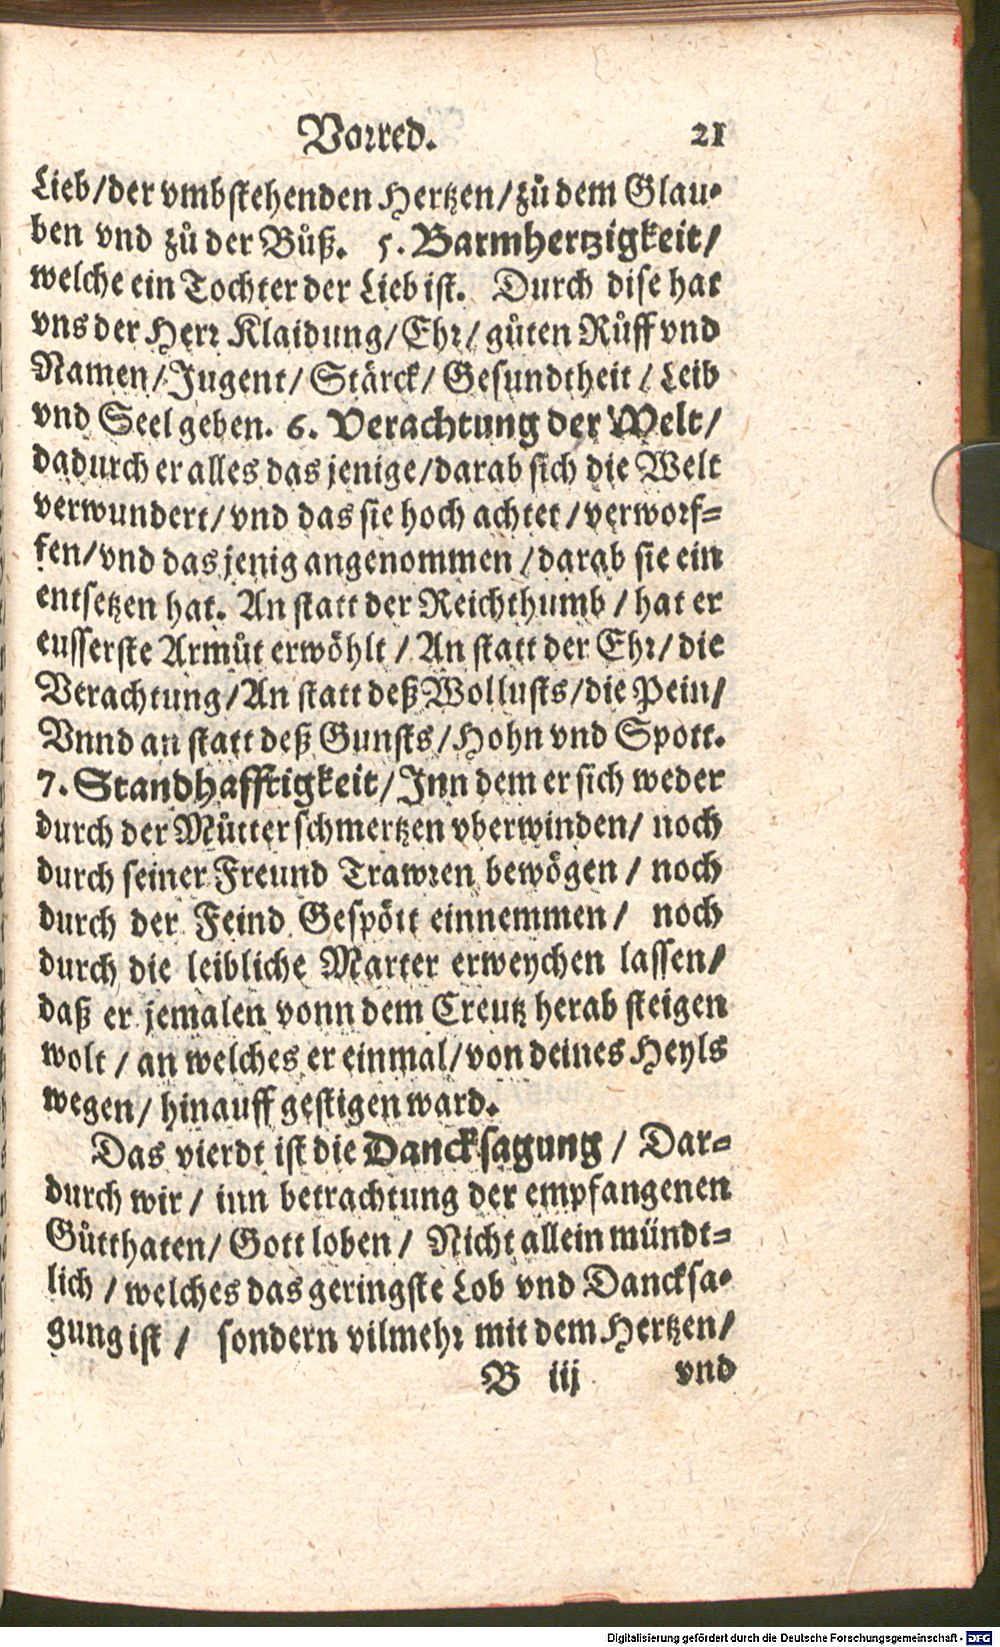 Vorred. 21
Lieb/der vmbstehenden Hertzen/zů dem Glau-
ben vnd zů der Bůß. 5. Barmhertzigkeit/
welche ein Tochter der Lieb ist. Durch dise hat
vns der Herr Klaidung/Ehr/ gůten Růff vnd
Namen/Jugent/ Stärck/ Gesundtheit / Leib
vnd Seel geben. 6. Verachtung der Welt/
dadurch er alles das jenige/darab sich die Welt
verwundert/vnd das sie hoch achtet/verworf-
fen/vnd das jenig angenommen/darab sie ein
entsetzen hat. An statt der Reichthumb / hat er
eusserste Armůt erwöhlt / An statt der Ehr/ die
Verachtung/An statt deß Wollusts/die Pein/
Vnnd an statt deß Gunsts/Hohn vnd Spott.
7. Standhafftigkeit/ Inn dem er sich weder
durch der Můtter schmertzen vberwinden/ noch
durch seiner Freund Trawren bewögen / noch
durch der Feind Gespött einnemmen/ noch
durch die leibliche Marter erweychen lassen/
daß er jemalen vonn dem Creutz herab steigen
wolt / an welches er einmal/von deines Heyls
wegen/ hinauff gestigen ward.
Das vierdt ist die Dancksagung / Dar-
durch wir / inn betrachtung der empfangenen
Gůtthaten/ Gott loben/ Nicht allein mündt-
lich / welches das geringste Lob vnd Dancksa-
gung ist / sondern vilmehr mit dem Hertzen/
B iij vnd
Digitalisierung gefördert durch die Deutsche Forschungsgemeinschaft - DFG